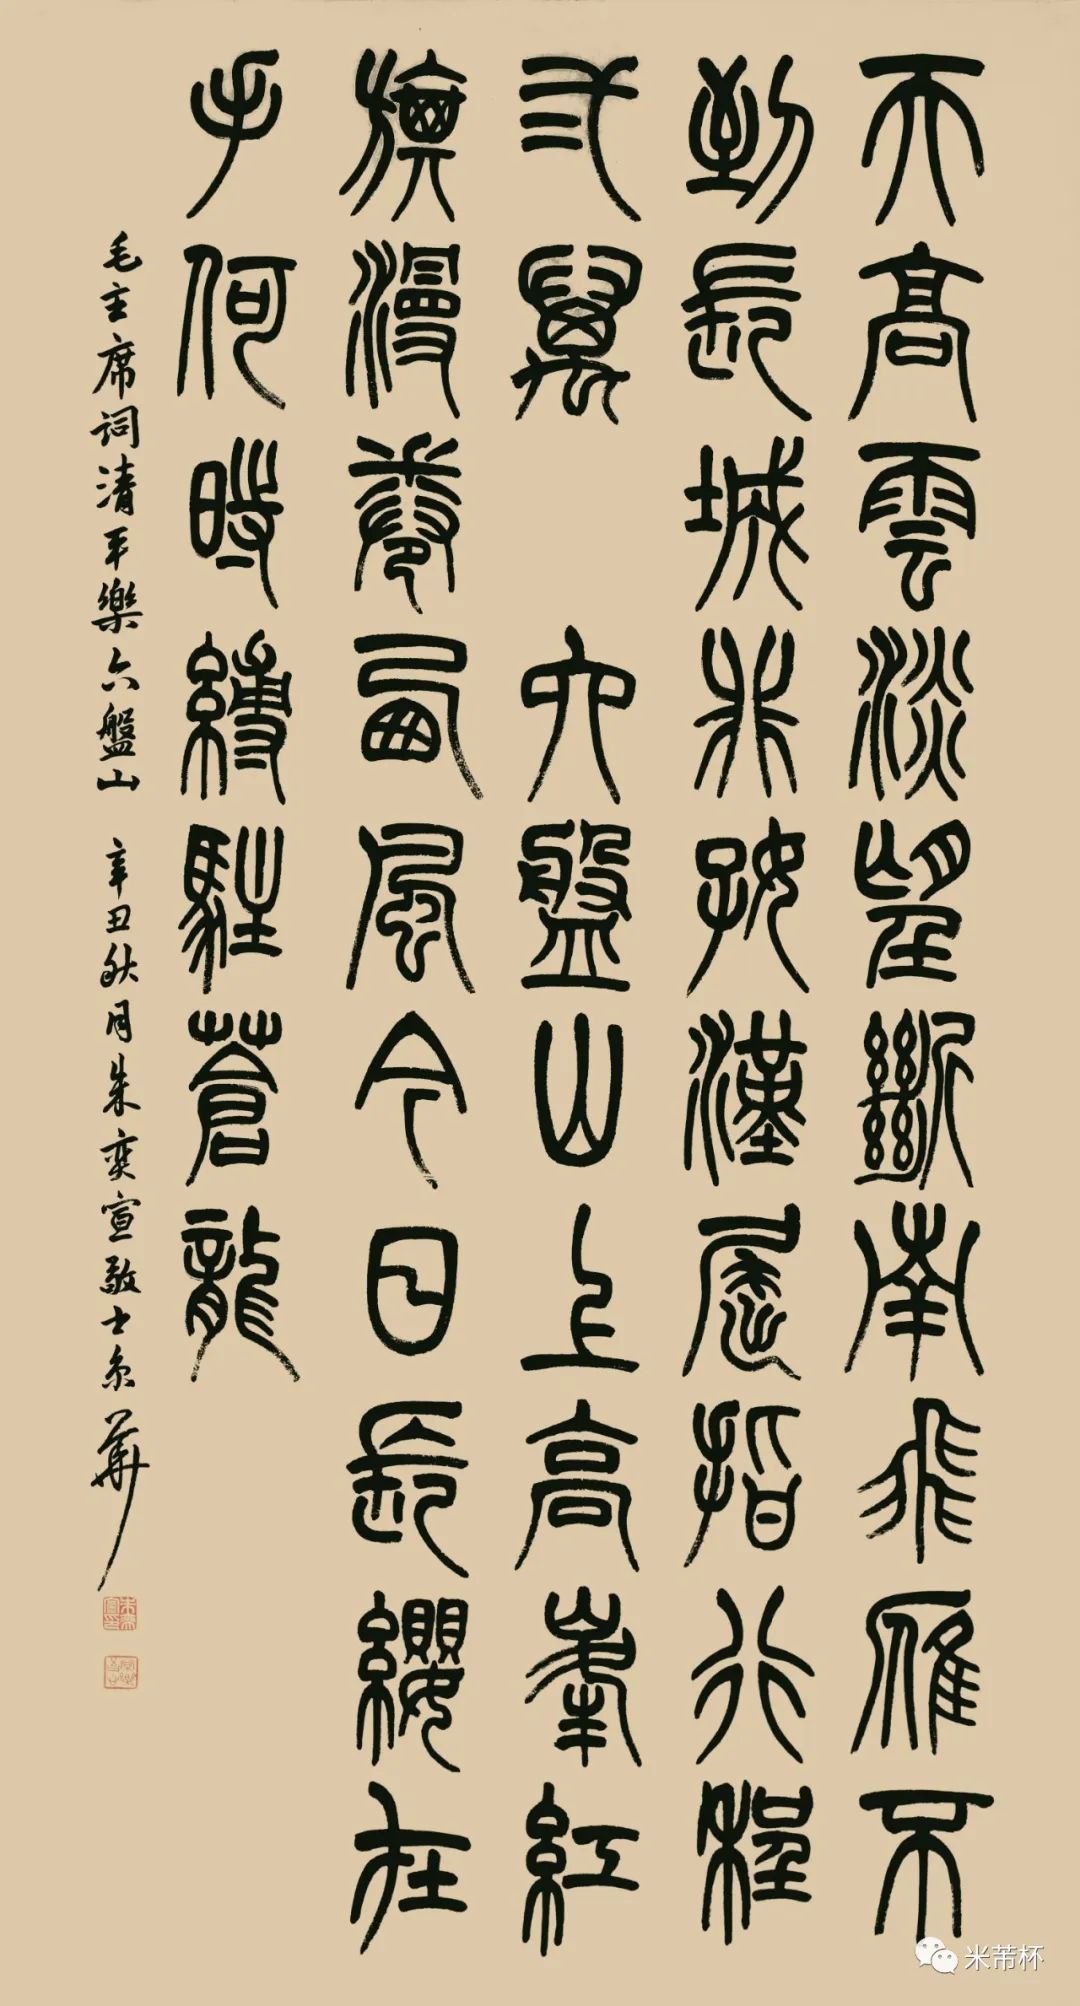 天高雲淡望斷南飛雁不
到長城非好漢屈指行程
弍萬 六盤山上高峯紅
旗漫卷西風今日長纓在
手何時縛駐蒼龍
毛主席詞清平樂六盤山 辛丑秋月朱奕宣敬京華
米芾杯